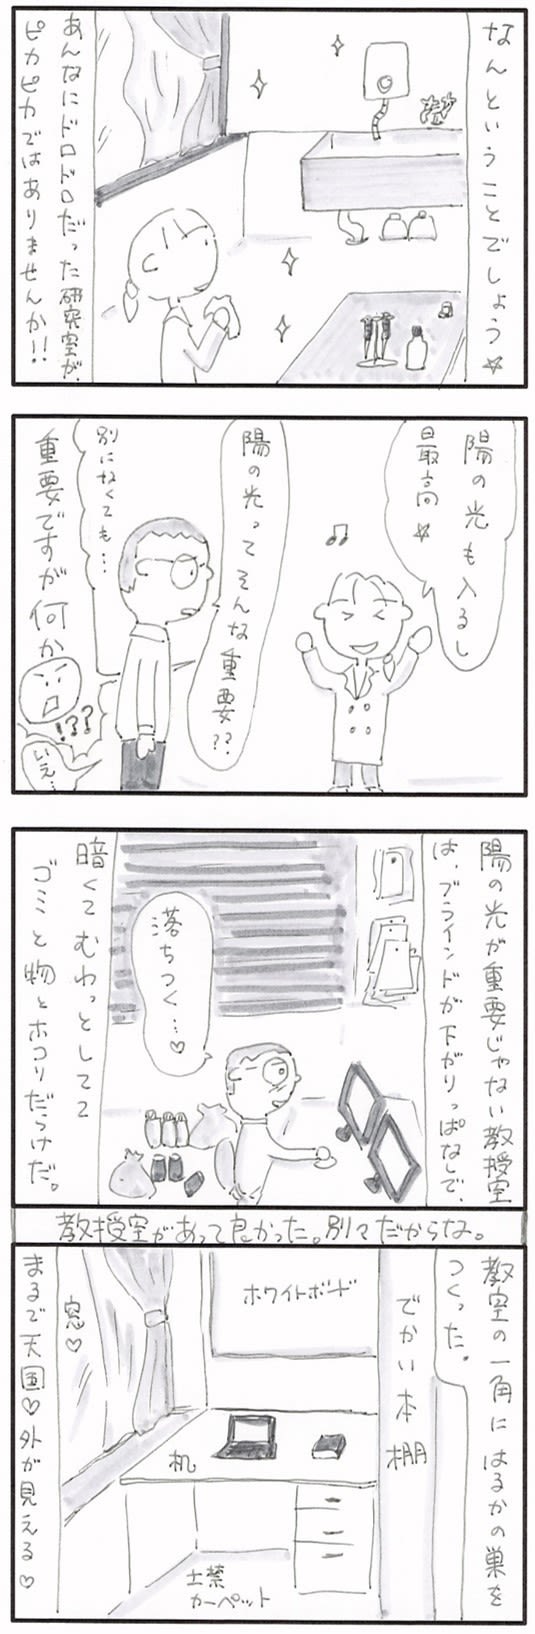 なんということでしょう☆
あんなにドロドロだった研究室が、
ピカピカではありませんか!!
陽の光も入るし
最高☆
陽の光ってそんな重要??
別になくても…
重要ですが何か
!???
いえ…
陽の光が重要じゃない教授室
は、ブラインドが下がりっぱなしで、
落ちつく…♡
暗くてむわっとしてて
ゴミと物とホコリだらけだ。
教授室があって良かった。別々だからな。
教室の一角にはるかの巣を
つくった。
でかい本棚
ホワイトボード
机
土禁
カーペット
窓♡
まるで天国♡外が見える♡